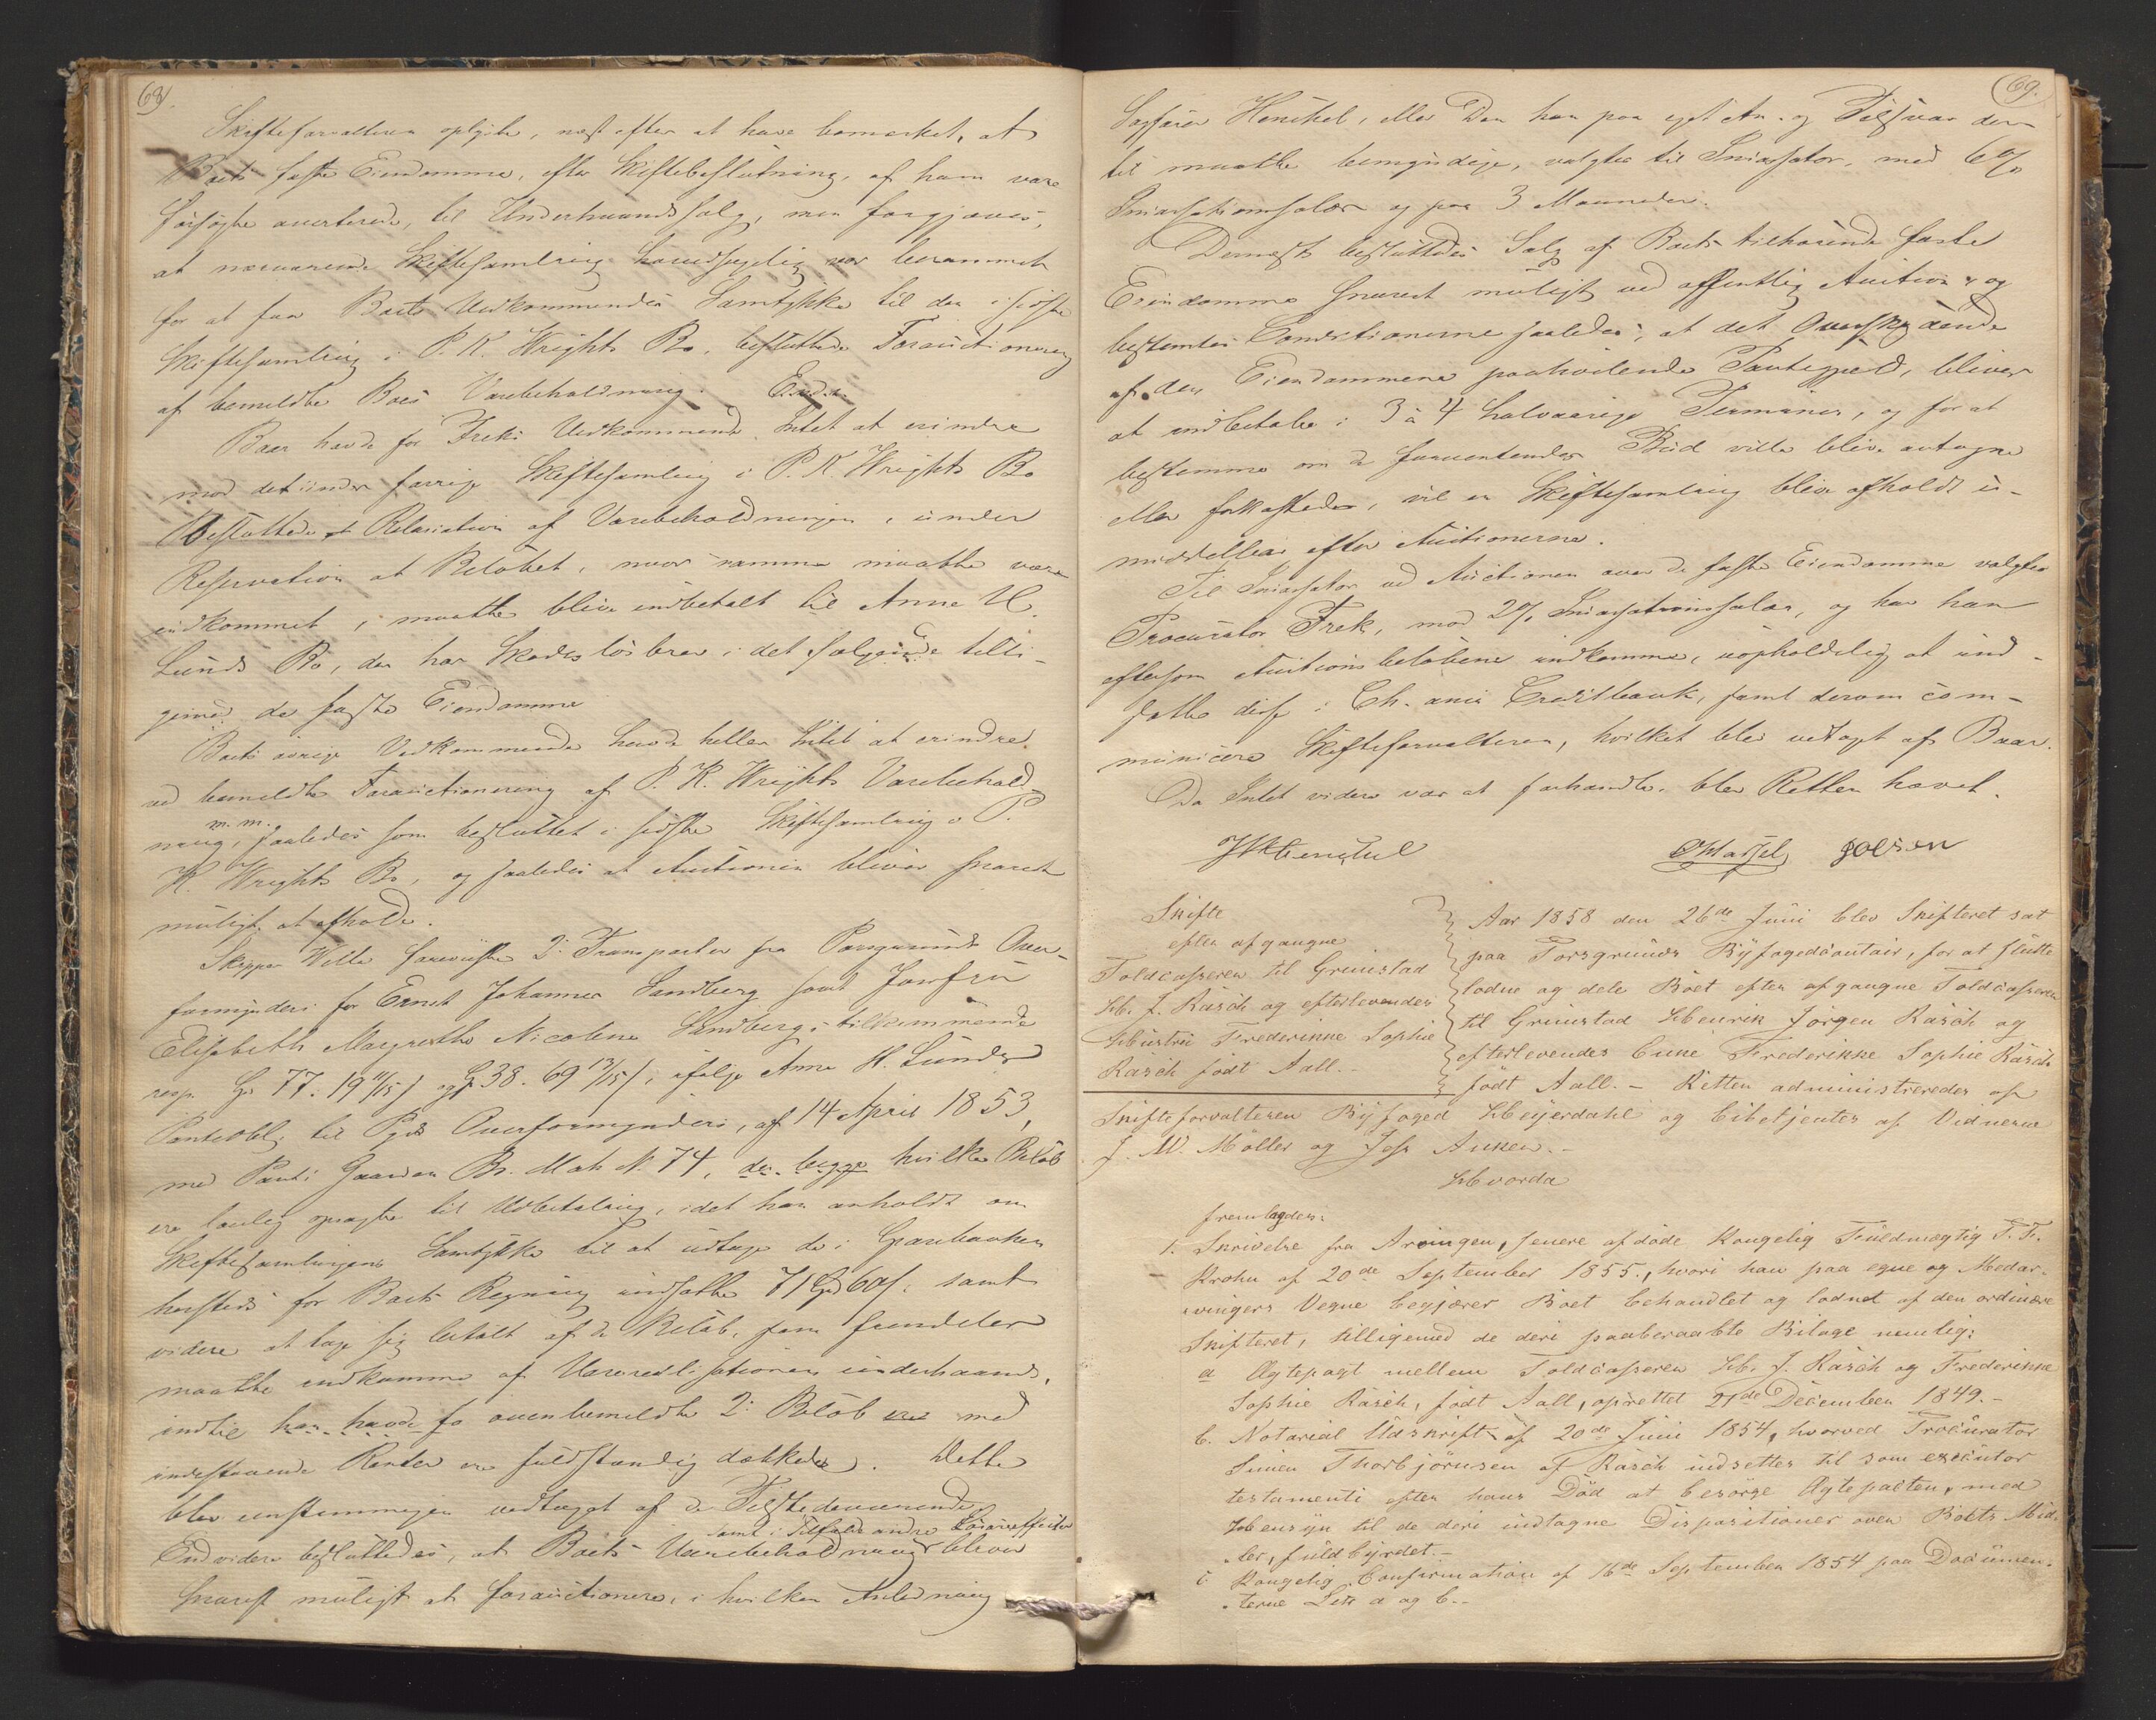 68.
Skifteforvalteren oplyste, næst efter at have bemærket, at
Boets faste Eiendomme, efter Skiftebeslutning, af ham vare
forsøgte averterede, til Underhaandssalg, men forgjæves,
at nærværende Skiftesamling hovedsagelig var berammet
for at faa Boets Vedkommendes Samtykke til den i sidste
Skiftesamling i P. K. Wrights Bo, besluttede Forauctionering
af bemeldte Boes Varebeholdning.
Baar havde for Freks Vedkommende Intet at erindre
mod det under forrige Skiftesamling i P. K. Wrights Bo
Besluttede af Varebeholdningen, under
Reservation at Beløbet, naar samme maatte være
indkommet, maatte blive indbetalt til Anne H.
Lunds Bo, der har Skadesløsbrev i det Solgte tilli-
gemed de faste Eiendomme
Boets øvrige Vedkommende havde heller Intet at erindre
ved bemeldte Forauctionering af P. K. Wrights Varebehold-
m. m.
ning, saaledes som besluttet i sidste Skiftesamling i P.
K. Wrights Bo, og saaledes at Auctionen bliver snarest
muligt at afholde.
Skipper Wille foreviste 2de Transporter fra Porsgrunds Over-
formynderi for Ernst Johannes Sandberg samt Jomfru
Elisabeth Margrethe Nicoline Sandbergs tilkommende
resp. Spd 77. 19 11/15 s og Spd 38. 69 13/15 s, ifølge Anne H. Lunds
Panteobl. til Pgds Overformynderi, af 14 April 1853,
med Pant i Gaarden Br. Mat. N. 74, de begge hvilke Beløb
ere lovlig opsagte til Udbetaling, idet han anholdt om
Skiftesamlingens Samtykke til at udtage de i Sparebanken
hersteds for Boets Regning indsatte 71 Spd 60 s. samt
videre at tage sig betalt af de Beløb, som fremdeles
maatte indkomme af Varerealisationen underhaands,
indtil han havde fo ovenbemeldte 2de Beløb med
indestaaende Renter ere fuldstændig dækkede. Dette
blev eenstemmigen vedtaget af de Tilstedeværende
samt i Tilfælde andre Løsøreeffecter
Endvidere besluttedes, at Boets Varebeholdning bliver
snarest muligst at forauctionere, i hvilken Anledning
69.
Sagfører Henschel, eller Den han paa eget An- og Tilsvar der-
til maatte bemyndige, valgtes til Incassator, mod 6%
Incassationssalær og paa 3 Maaneder.
Dernæst besluttedes Salg af Boets tilhørende faste
Eiendomme snarest muligt ved offentlig Auction, og
bestemtes Conditionerne saaledes, at det Overskydende
af den Eiendommene paahvilende Pantegjæld, bliver
at indbetale i 3 à 4 halvaarige Terminer, og for at
bestemme om de fremkomne Bud ville blive antagne
eller forkastede, vil en Skiftesamling blive afholdt u-
middelbar efter Auctionerne.
Til Incassator ved Auctionen over de faste Eiendomme valgtes
Procurator Frek, mod 2% Incassationssalær, og har han
eftersom Auctionsbeløbene indkomme, uopholdelig at ind-
sætte disse i Ch.ania Creditbank, samt derom com-
municere Skifteforvalteren, hvilket blev vedtaget af Baar.
Da Intet videre var at forhandle, blev Retten hævet.
Henschel
Olsen
Skifte
efter afgangne
Toldcasserer til Grimstad
H. J. Rasch og efterlevendes
Hustru Frederikke Sophie
Rasch født Aall.-
Aar 1858 den 26de Juni blev Skifteret sat
paa Porsgrunds Byfogedcontoir, for at slutte
lodne og dele Boet efter afgangne Toldcasserer
til Grimstad Henrik Jørgen Rasch og
efterlevendes Enke Frederikke Sophie Rasch
født Aall.- Retten administreredes af
Skifteforvalteren Byfoged Heyerdahl og bibetjentes af Vidnerne
J. W. Möller og Jess Anken.-
Hvorda
fremlagdes:
1. Skrivelse fra Arvingen, senere afdøde Kongelig Fuldmægtig F. F.
Krohn af 20de September 1855, hvori han paa egne og Medar-
vingers Vegne begjærer Boet behandlet og lodnet af den ordinære
Skifteret, tilligemed de deri paaberaabte Bilage nemlig:
a Ægtepagt mellem Toldcasserer H. J. Rasch og Frederikke
Sophie Rasch, født Aall, oprettet 21de December 1849.-
b. Notarial Udskrift af 20de Juni 1854, hvorved Procurator
Simen Thorbjørnsen af Rasch indsettes til som executor
testamenti efter hans Død at besørge Ægtepacten, med
Hensyn til de deri indtagne Dispositioner over Boets Mid-
ler, fuldbyrdet.-
c. Kongelig Confirmation af 16de September 1854 paa Documen-
terne Litr a og b.-